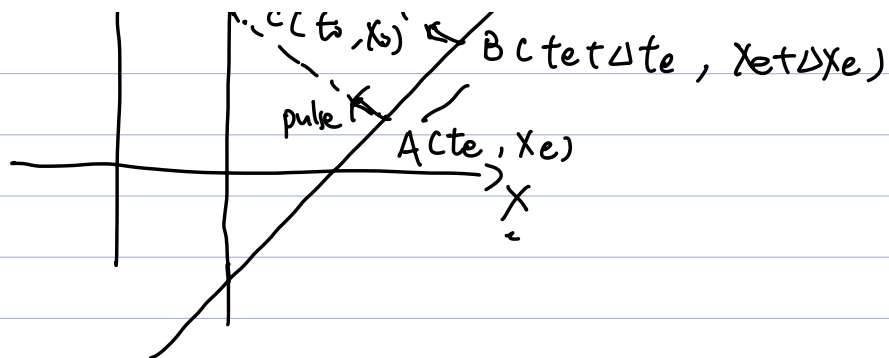 C(to, Xo)
B(te+Δte, Xe+ΔXe)
pulse
A(te, Xe)
X